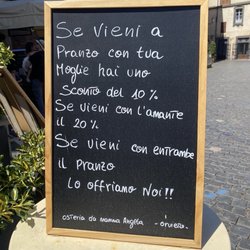 Se vieni a
Pranzo con tua
Moglie hai uno
Sconto del 10%
Se vieni con l'amante
il 20%
Se vieni con entrambe
il Pranzo
Lo offriamo Noi!!
osteria da mamma Angela - orvieto.